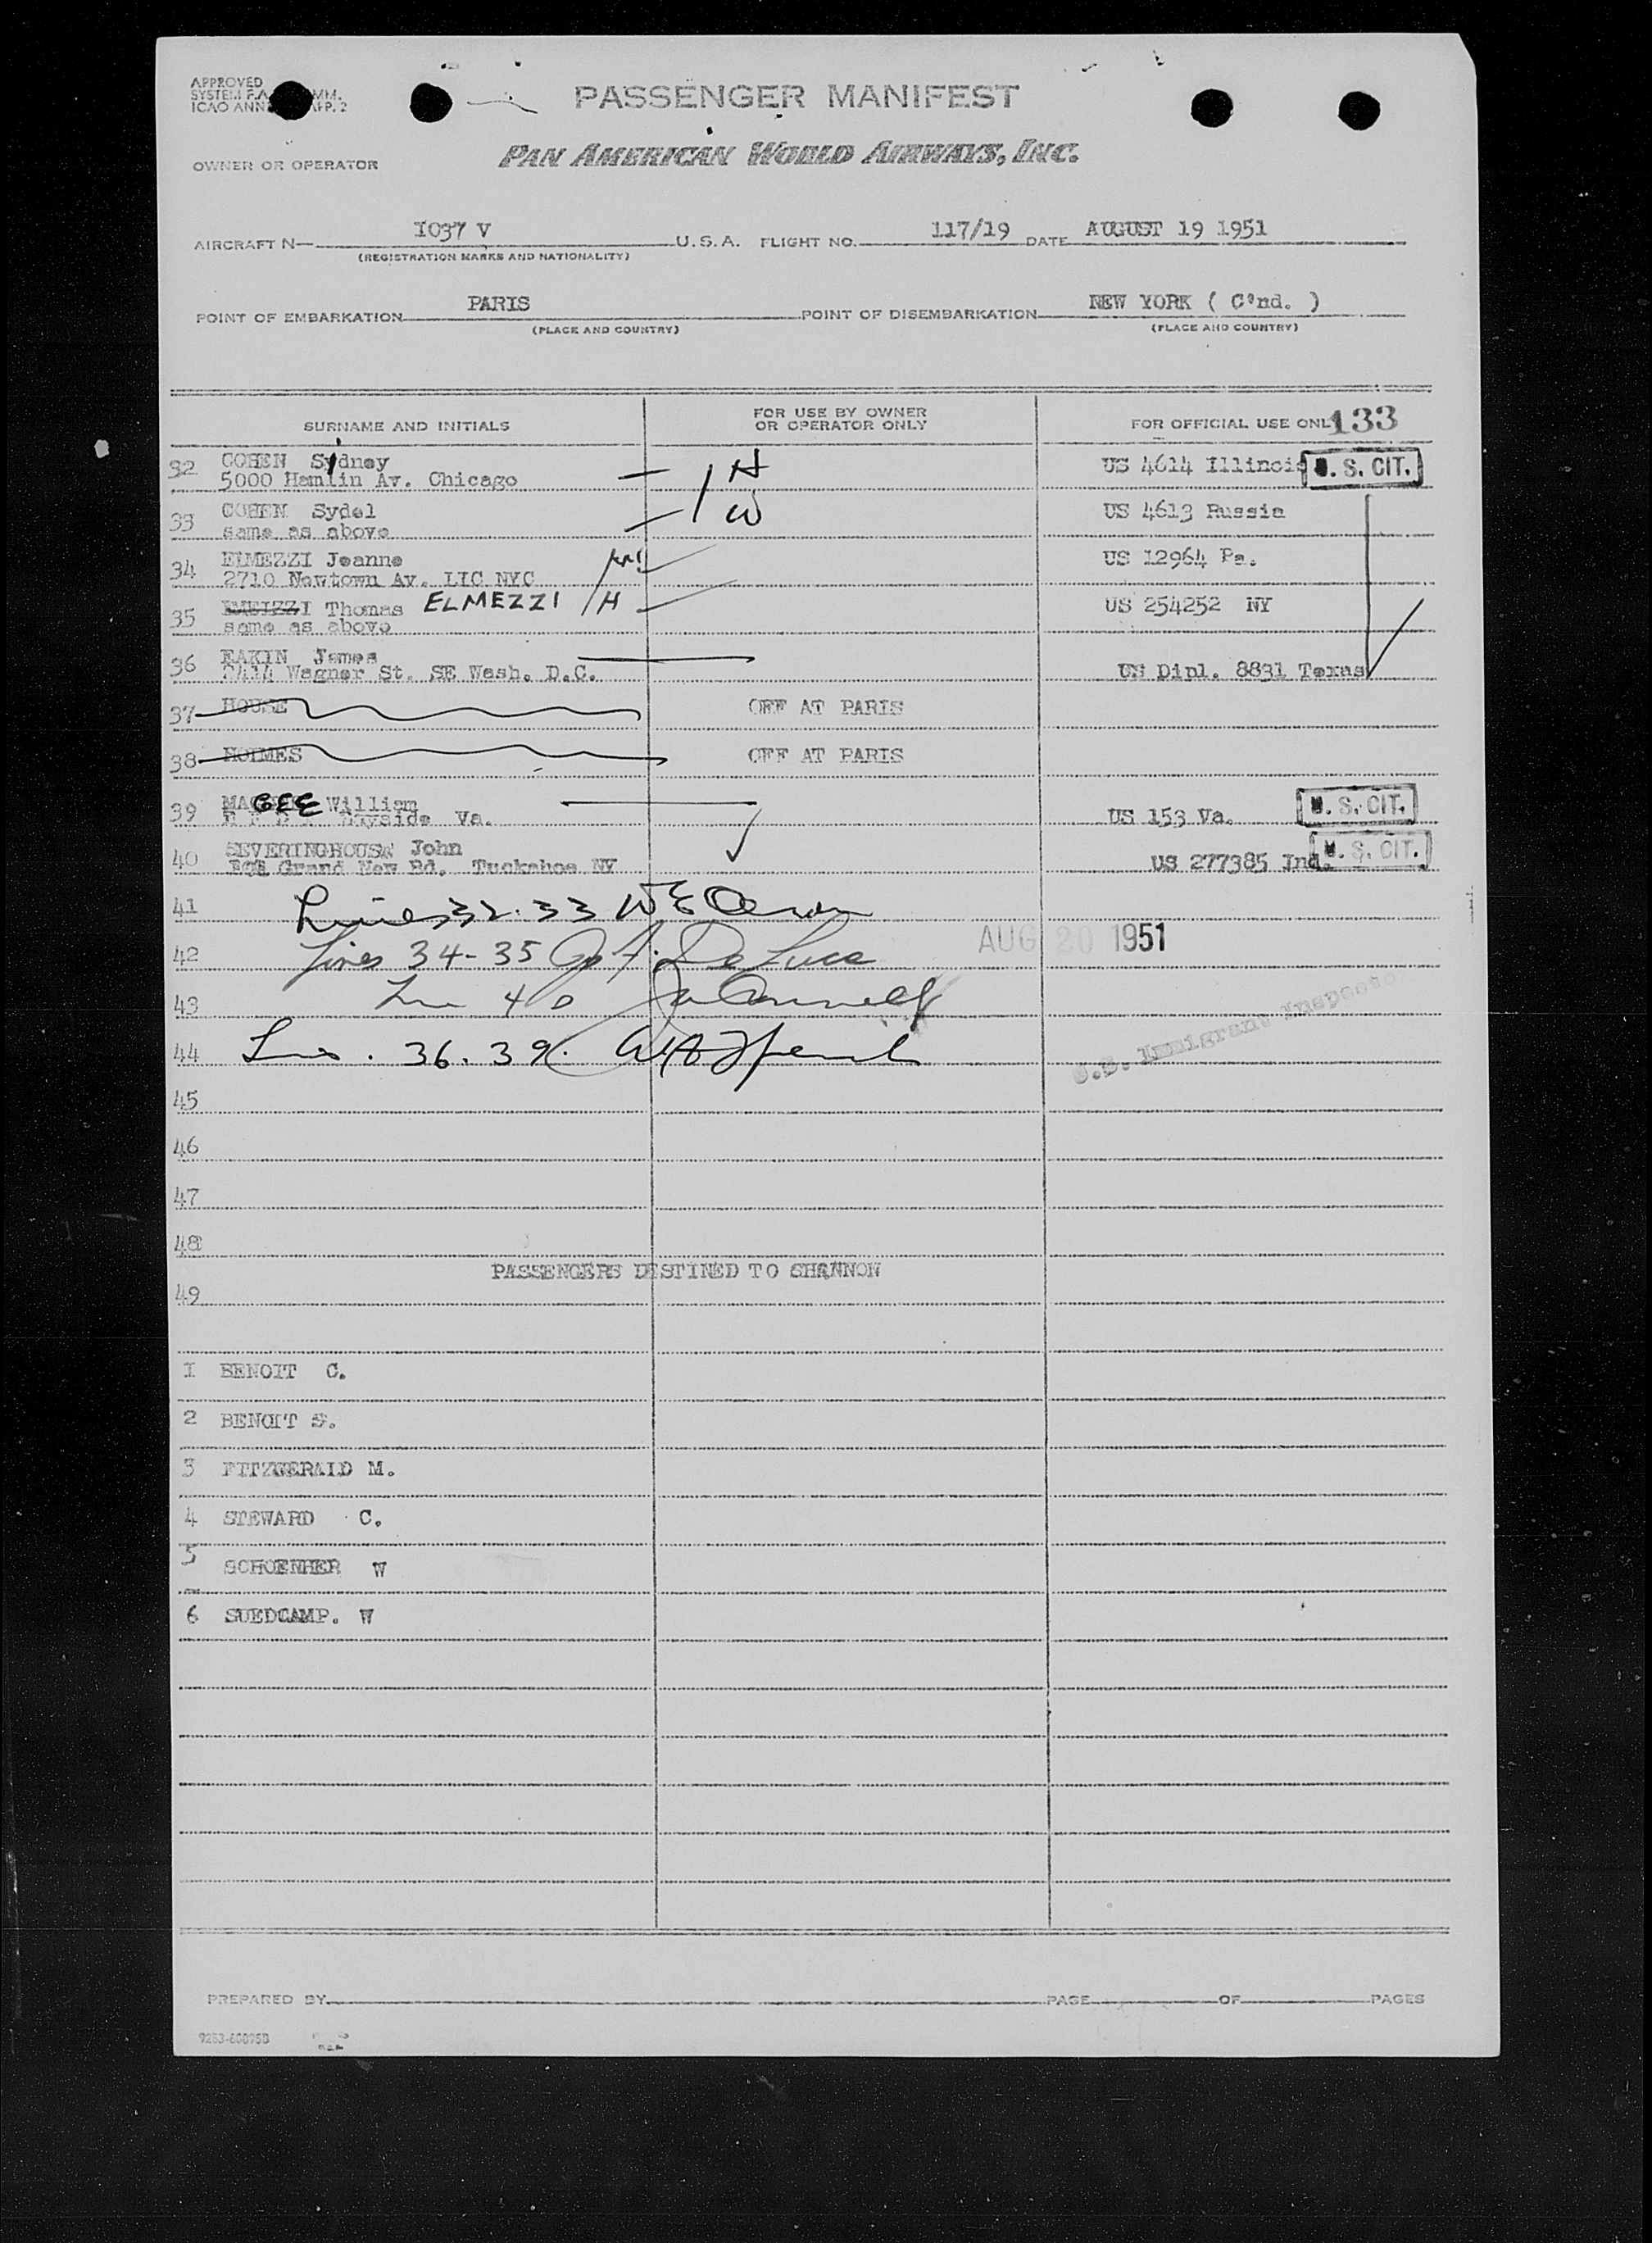 APPROVED
SYSTEM F.A. MM.
ICAO ANN AFP. 2
PASSENGER MANIFEST
OWNER OR OPERATOR
PAN AMERICAN WORLD AIRWAYS, INC.
AIRCRAFT N— 1037 V U.S.A. FLIGHT NO. 117/19 DATE AUGUST 19 1951
(REGISTRATION MARKS AND NATIONALITY)
POINT OF EMBARKATION PARIS POINT OF DISEMBARKATION NEW YORK ( C'nd. )
(PLACE AND COUNTRY) (PLACE AND COUNTRY)
SURNAME AND INITIALS FOR USE BY OWNER OR OPERATOR ONLY FOR OFFICIAL USE ONL 133
32 COHEN Sydney H US 4614 Illinois U. S. CIT.
5000 Hamlin Av. Chicago
33 COHEN Sydel W US 4613 Russia
same as above
34 ELMEZZI Jeanne US 12964 Pa.
2710 Newtown Av. LIC NYC
35 Thomas ELMEZZI H US 254252 NY
same as above
36 EAKIN James US Dipl. 8831 Texas
2414 Wagner St. SE Wash. D.C.
37 HOUSE OFF AT PARIS
38 HOLMES OFF AT PARIS
39 MAGEE William US 153 Va. U. S. CIT.
Va.
40 SEVERINGHOUSE John US 277385 Ind. U. S. CIT.
Grand New Rd. Tuckahoe NY
41 Lines 32.33
42 Lines 34-35 De Luca AUG 20 1951
43 40
44 36.39. U.S. Immigrant Inspector
45
46
47
48
PASSENGERS DESTINED TO SHANNON
49
1 BENOIT C.
2 BENOIT S.
3 FITZGERALD M.
4 STEWARD C.
5 SCHOENHER W
6 SUEDCAMP. W
PREPARED BY PAGE OF PAGES